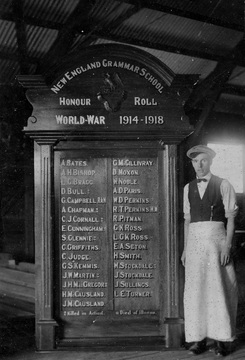 NEW ENGLAND GRAMMAR SCHOOL
HONOUR ROLL
WORLD-WAR 1914-1918
A BATES
A H BISHOP
C G BRAGG
D BULL
G CAMPBELL
A CHAPMAN
C J CORNALL
E CUNNINGHAM
S GLENNIE
C GRIFFITHS
C JUDGE
C S KEMMIS
J W MARTIN
J H MCGREGOR
H MCAUSLAND
J MCAUSLAND
‡ Killed in Action
G MCGILLIVRAY
B MOXON
H NOBLE
A D PARIS
W D PERKINS
R T PERKINS
R PITMAN
G K ROSS
L G K ROSS
E A SETON
H SMITH
N STOCKDALE
J STOCKDALE
J SULLINGS
L E TURNER
Died of Illness